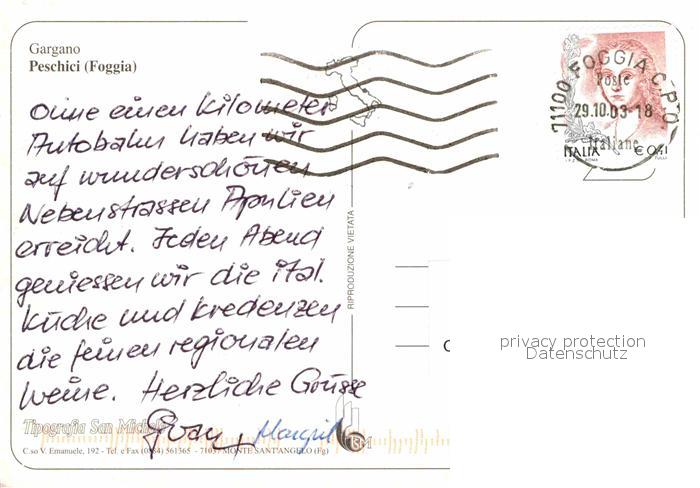 Gargano
Peschici (Foggia)
Ohne einen Kilometer
Autobahn haben wir
auf wunderschönen
Nebenstrassen Apulien
erreicht. Jeden Abend
geniessen wir die ital.
Küche und kredenzen
die feinen regionalen
Weine. Herzliche Grüsse
Margrit
Tipografia San Michele
C.so V. Emanuele, 192 - Tel. e Fax (0884) 561365 - 71037 MONTE SANT'ANGELO (Fg)
RIPRODUZIONE VIETATA
71100 FOGGIA C.P.O.
Poste
29.10.03-18
Italiane
ITALIA € 0,41
privacy protection
Datenschutz